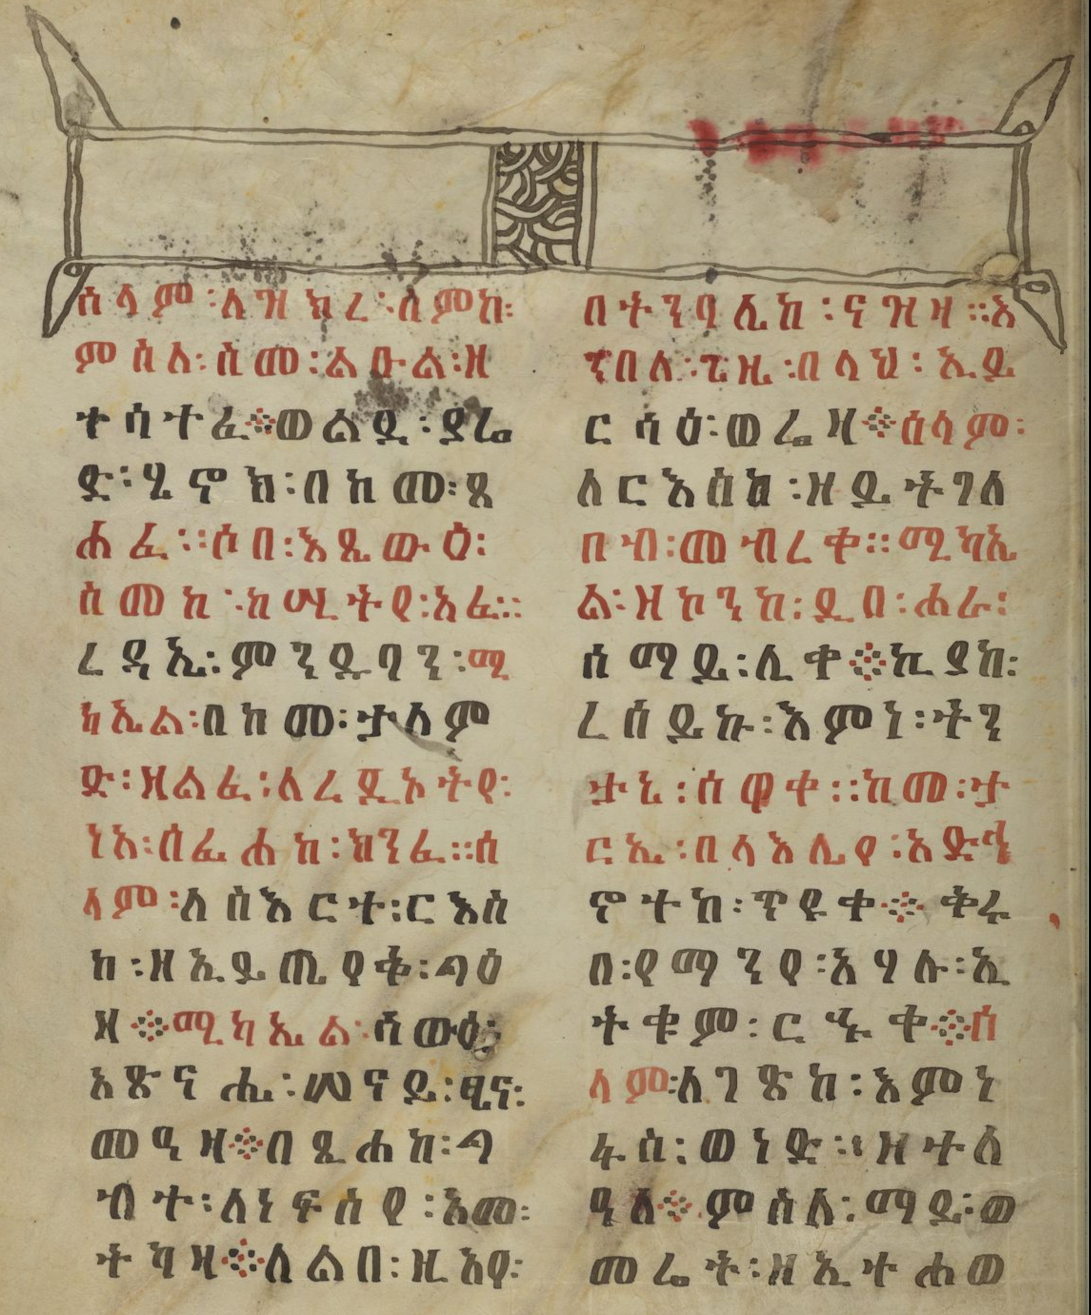 ሰላም፡ለዝክረ፡ስምከ፡
ምስለ፡ስመ፡ልዑል፡ዘ
ተሳተፈ፨ወልደ፡ያሬ
ድ፡ሄኖክ፡በከመ፡ጸ
ሐፈ፡፡ሶበ፡እጼውዕ፡
ስመከ፡ከሢትየ፡አፈ፡፡
ረዳኢ፡ምንዱባን፡ሚ
ካኤል፡በከመ፡ታለም
ድ፡ዘልፈ፡ለረዲኦትየ፡
ነአ፡ሰፊሐከ፡ክንፈ፡፡ሰ
ላም፡ለስእርተ፡ርእስ
ከ፡ዘኢይጤየቆ፡ጣዕ
ዛ፨ሚካኤል፡ሣውዕ፡
አጽናሒ፡ሠናይ፡ፂና፡
መዓዛ፨በጼሐከ፡ጣ
ብተ፡ለነፍስየ፡እመ፡
ትካዛ፨ለልበ፡ዚአየ፡
በትንባሊከ፡ናዝዛ፡፡እ
ኘበለ፡ጌዜ፡በላህ፡ኢይ
ርሳዕ፡ወሬዛ፨ሰላም፡
ለርእስከ፡ዘይትገለ
በብ፡መብረቀ፡፡ሚካኤ
ል፡ዝኮንከ፡ዲበ፡ሐራ፡
ሰማይ፡ሊቀ፨ኪያከ፡
ረሰይኩ፡እምነ፡ትን
ታኔ፡ሰዋቀ፡፡ከመ፡ታ
ርኢ፡በላእሌየ፡አድኅ
ኖተከ፡ጥዩቀ፨ቅሩ
በ፡የማንየ፡አሃሉ፡ኢ
ትቁም፡ርኁቀ፨ሰ
ላም፡ለገጽከ፡እምነ
ፋስ፡ወነድ፡ዘተለ
ዓለ፨ምስለ፡ማይ፡ወ
መሬት፡ዘኢተሐወ